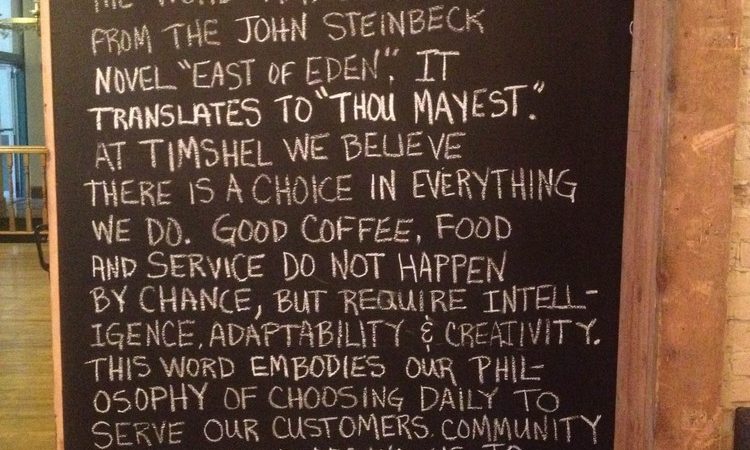 THE WORD
FROM THE JOHN STEINBECK
NOVEL "EAST OF EDEN". IT
TRANSLATES TO "THOU MAYEST."
AT TIMSHEL WE BELIEVE
THERE IS A CHOICE IN EVERYTHING
WE DO. GOOD COFFEE, FOOD
AND SERVICE DO NOT HAPPEN
BY CHANCE, BUT REQUIRE INTELL-
IGENCE, ADAPTABILITY & CREATIVITY.
THIS WORD EMBODIES OUR PHIL-
OSOPHY OF CHOOSING DAILY TO
SERVE OUR CUSTOMERS. COMMUNITY
TO